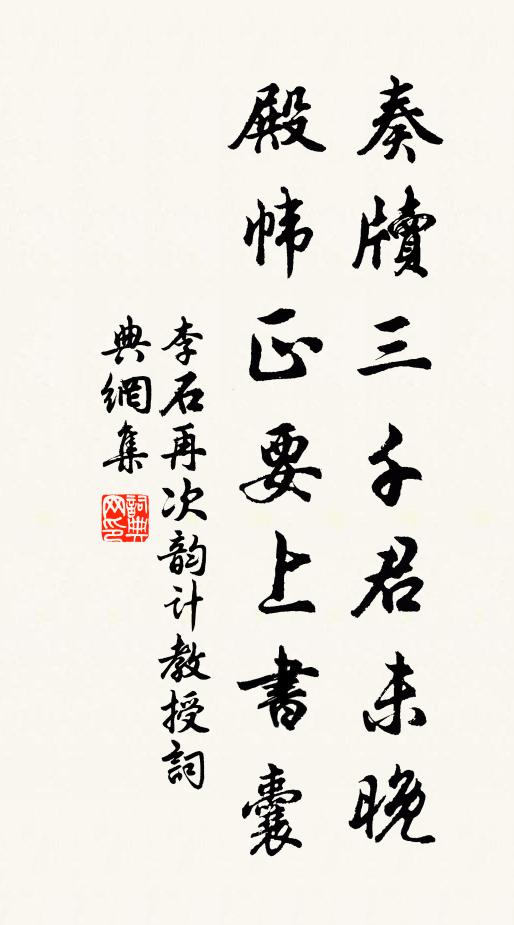 奏牘三千君未晚
殿帏正要上書囊
李石再次韵计教授詞
典網集
詞典
网印